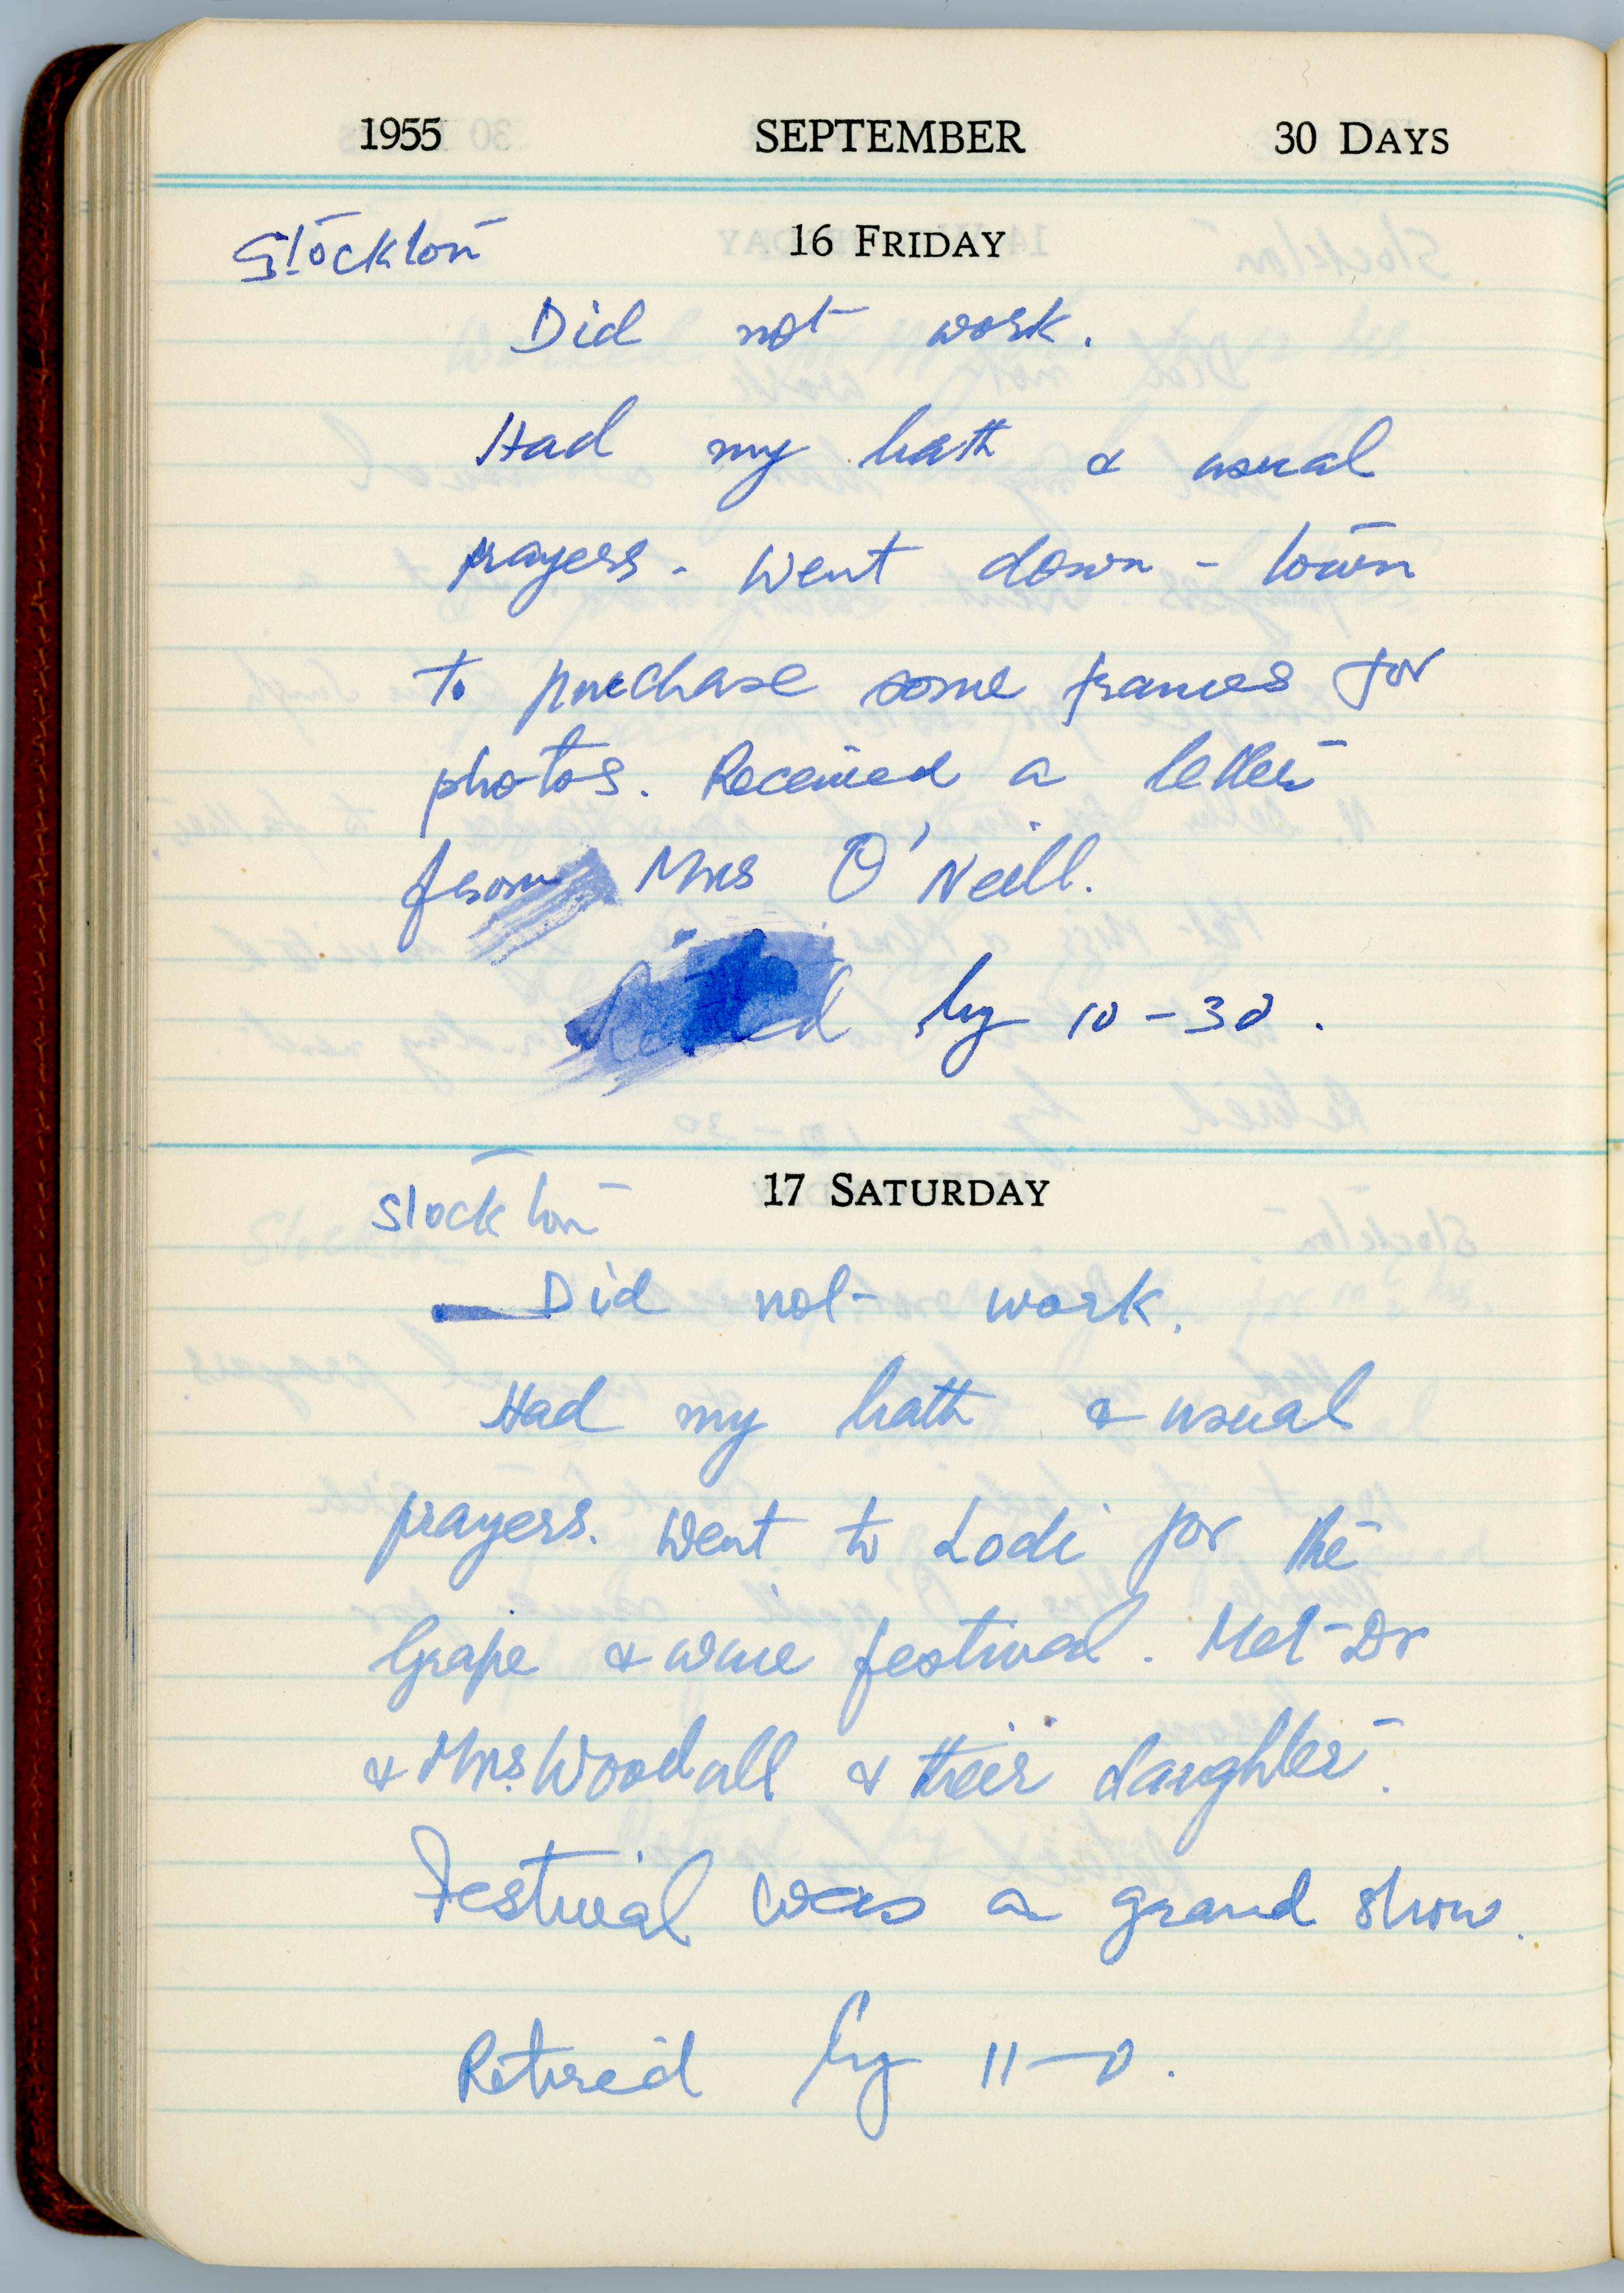 1955 SEPTEMBER 30 DAYS
Stockton 16 FRIDAY
Did not work.
Had my bath & usual
prayers. Went down-town
to purchase some frames for
photos. Received a letter
from Mrs O'Neill.
by 10-30.
Stockton 17 SATURDAY
Did not work.
Had my bath & usual
prayers. Went to Lodi for the
Grape & wine festival. Met Dr
& Mrs. Woodall & their daughter.
Festival was a grand show.
Retired by 11-0.